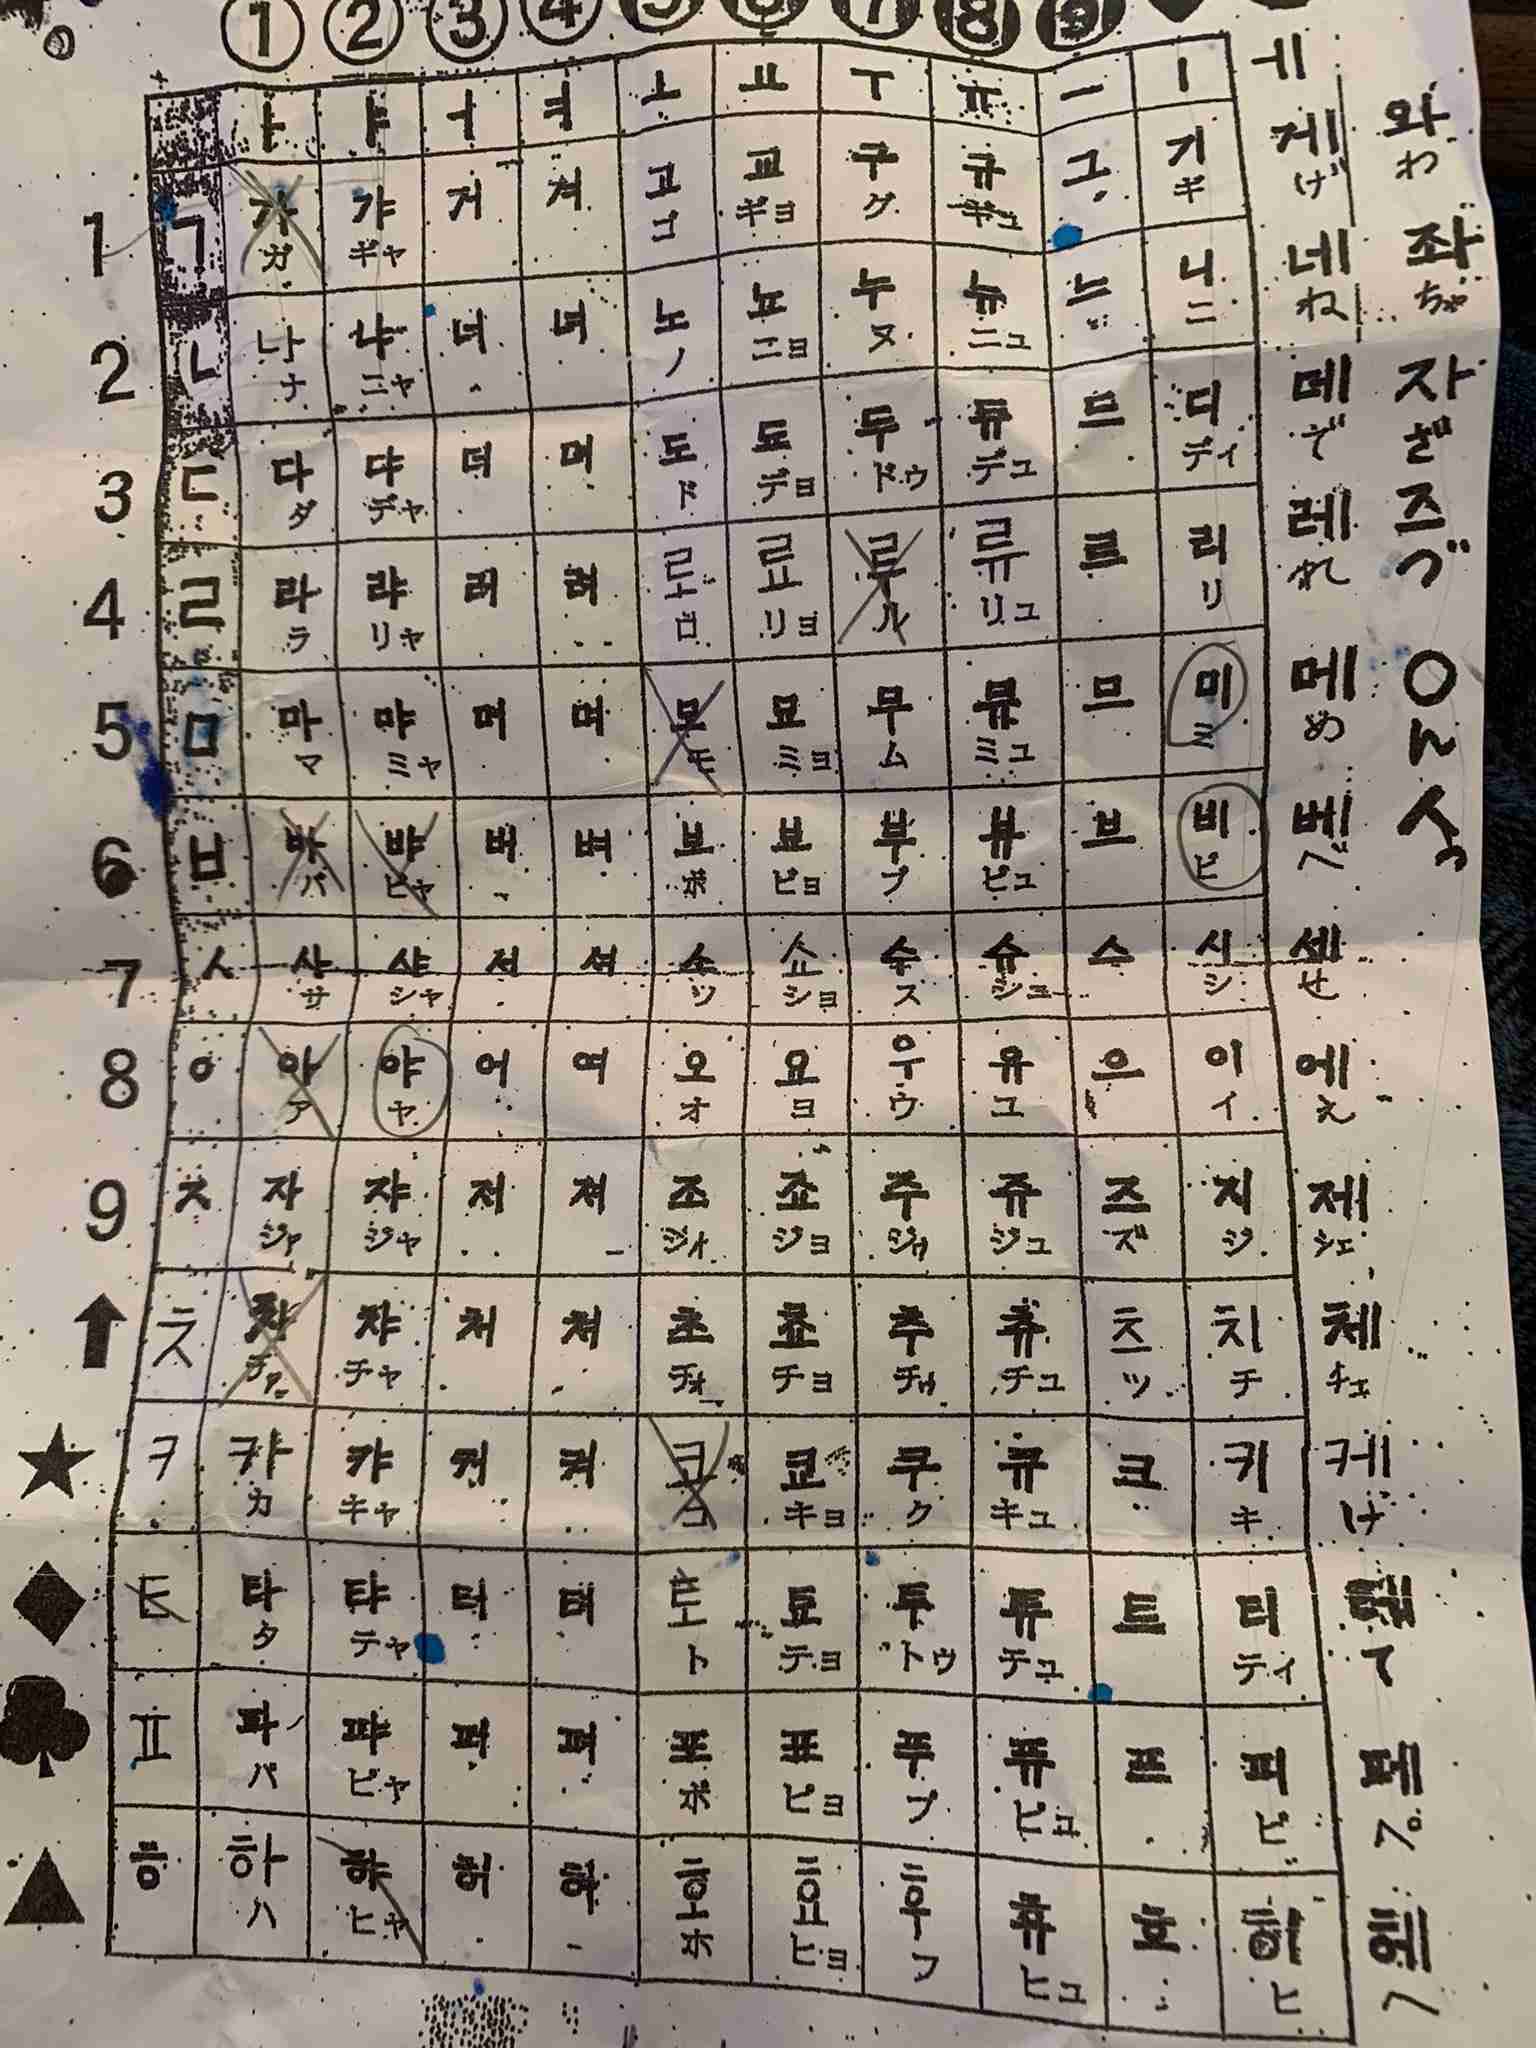 ① ② ③ ④ ⑤ ⑥ ⑦ ⑧ ⑨
ㅏ ㅑ ㅓ ㅕ ㅗ ㅛ ㅜ ㅠ ㅡ ㅣ ㅔ
1 ㄱ 가 갸 거 겨 고 교 구 규 그 기 게 와
ガ ギャ ゴ ギョ グ ギュ ギ げ わ
2 ㄴ 나 냐 너 녀 노 뇨 누 뉴 느 니 네 좌
ナ ニャ ノ ニョ ヌ ニュ ニ ね ちゃ
3 ㄷ 다 댜 더 뎌 도 됴 두 듀 드 디 데 자
ダ デャ ド デョ ドゥ デュ ディ で ざ
4 ㄹ 라 랴 러 려 로 료 루 류 르 리 레 즈
ラ リャ ロ リョ ル リュ リ れ づ
5 ㅁ 마 먀 머 며 모 묘 무 뮤 므 미 메 ㅇ
マ ミャ モ ミョ ム ミュ ミ め ん
6 ㅂ 바 뱌 버 벼 보 뵤 부 뷰 브 비 베 ㅅ
バ ビャ ボ ビョ ブ ビュ ビ べ っ
7 ㅅ 샤 샤 서 셔 소 쇼 수 슈 스 시 세
サ シャ ソ ショ ス シュ シ せ
8 ㅇ 아 야 어 여 오 요 우 유 으 이 에
ア ヤ オ ヨ ウ ユ イ え
9 ㅈ 자 쟈 저 져 조 죠 주 쥬 즈 지 제
ジァ ジャ ジォ ジョ ジゥ ジュ ズ ジ ジェ
ㅊ 차 챠 처 쳐 초 쵸 추 츄 츠 치 체
チァ チャ チォ チョ チゥ チュ ツ チ チェ
ㅋ 캬 캬 커 켜 코 쿄 쿠 큐 크 키 케
カ キャ コ キョ ク キュ キ け
ㅌ 타 탸 터 텨 토 툐 투 튜 트 티 테
タ テャ ト テョ トゥ テュ ティ て
ㅍ 파 퍄 퍼 펴 포 표 푸 퓨 프 피 페
パ ピャ ポ ピョ プ ピュ ピ ぺ
ㅎ 하 햐 허 호 효 후 휴 흐 히 헤
ハ ヒャ ホ ヒョ フ ヒュ ヒ へ